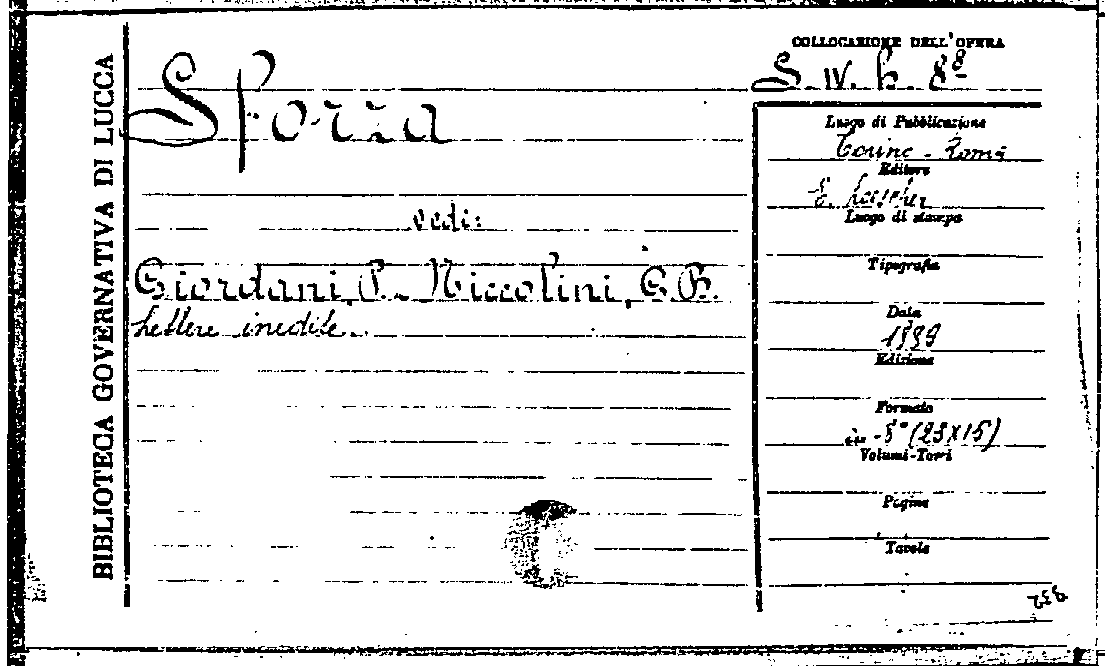 BIBLIOTECA GOVERNATIVA DI LUCCA
Sforza
vedi:
Giordani, P. - Niccolini, G. B.
Lettere inedite.
COLLOCAZIONE DELL'OPERA
S. IV. h. 88
Luogo di Pubblicazione
Torino - Roma
Editore
E. Loescher
Luogo di stampa
Tipografia
Data
Edizione
Formato
in-8° (23x15)
Volumi-Tomi
Pagine
Tavole